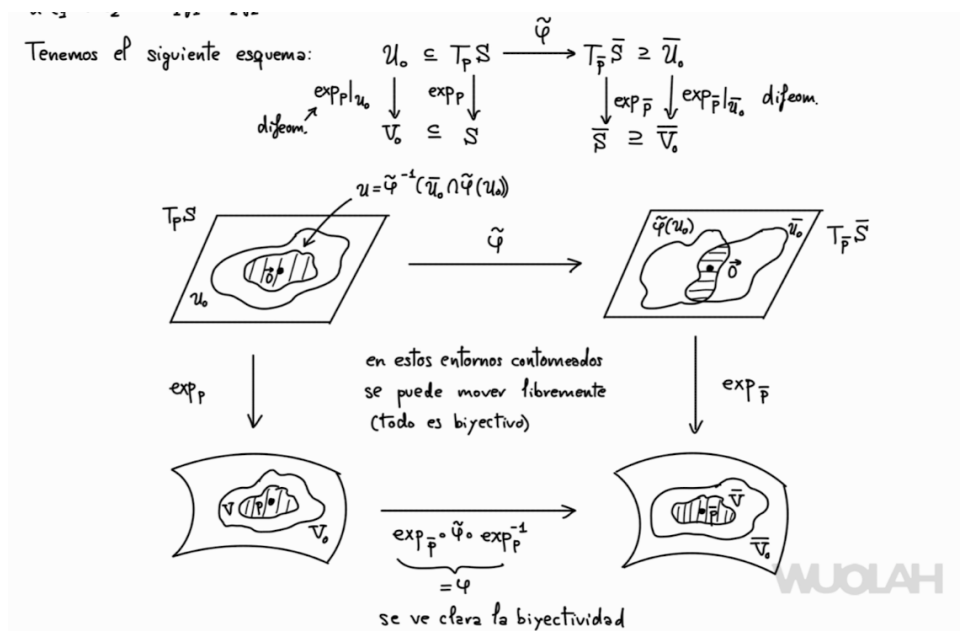 Tenemos el siguiente esquema:
φ̃
U₀ ⊆ TₚS → T_p̄ S̄ ⊇ Ū₀
expₚ|U₀ expₚ exp_p̄ exp_p̄|Ū₀ difeom.
difeom.
V₀ ⊆ S S̄ ⊇ V̄₀
u = φ̃⁻¹(Ū₀ ∩ φ̃(U₀))
TₚS
φ̃
φ̃(U₀) Ū₀
T_p̄ S̄
0⃗ 0⃗
U₀
en estos entornos contorneados
se puede mover libremente
(todo es biyectivo)
expₚ exp_p̄
V p V₀
V̄ p̄ V̄₀
exp_p̄ ∘ φ̃ ∘ expₚ⁻¹
= φ
se ve clara la biyectividad
WUOLAH